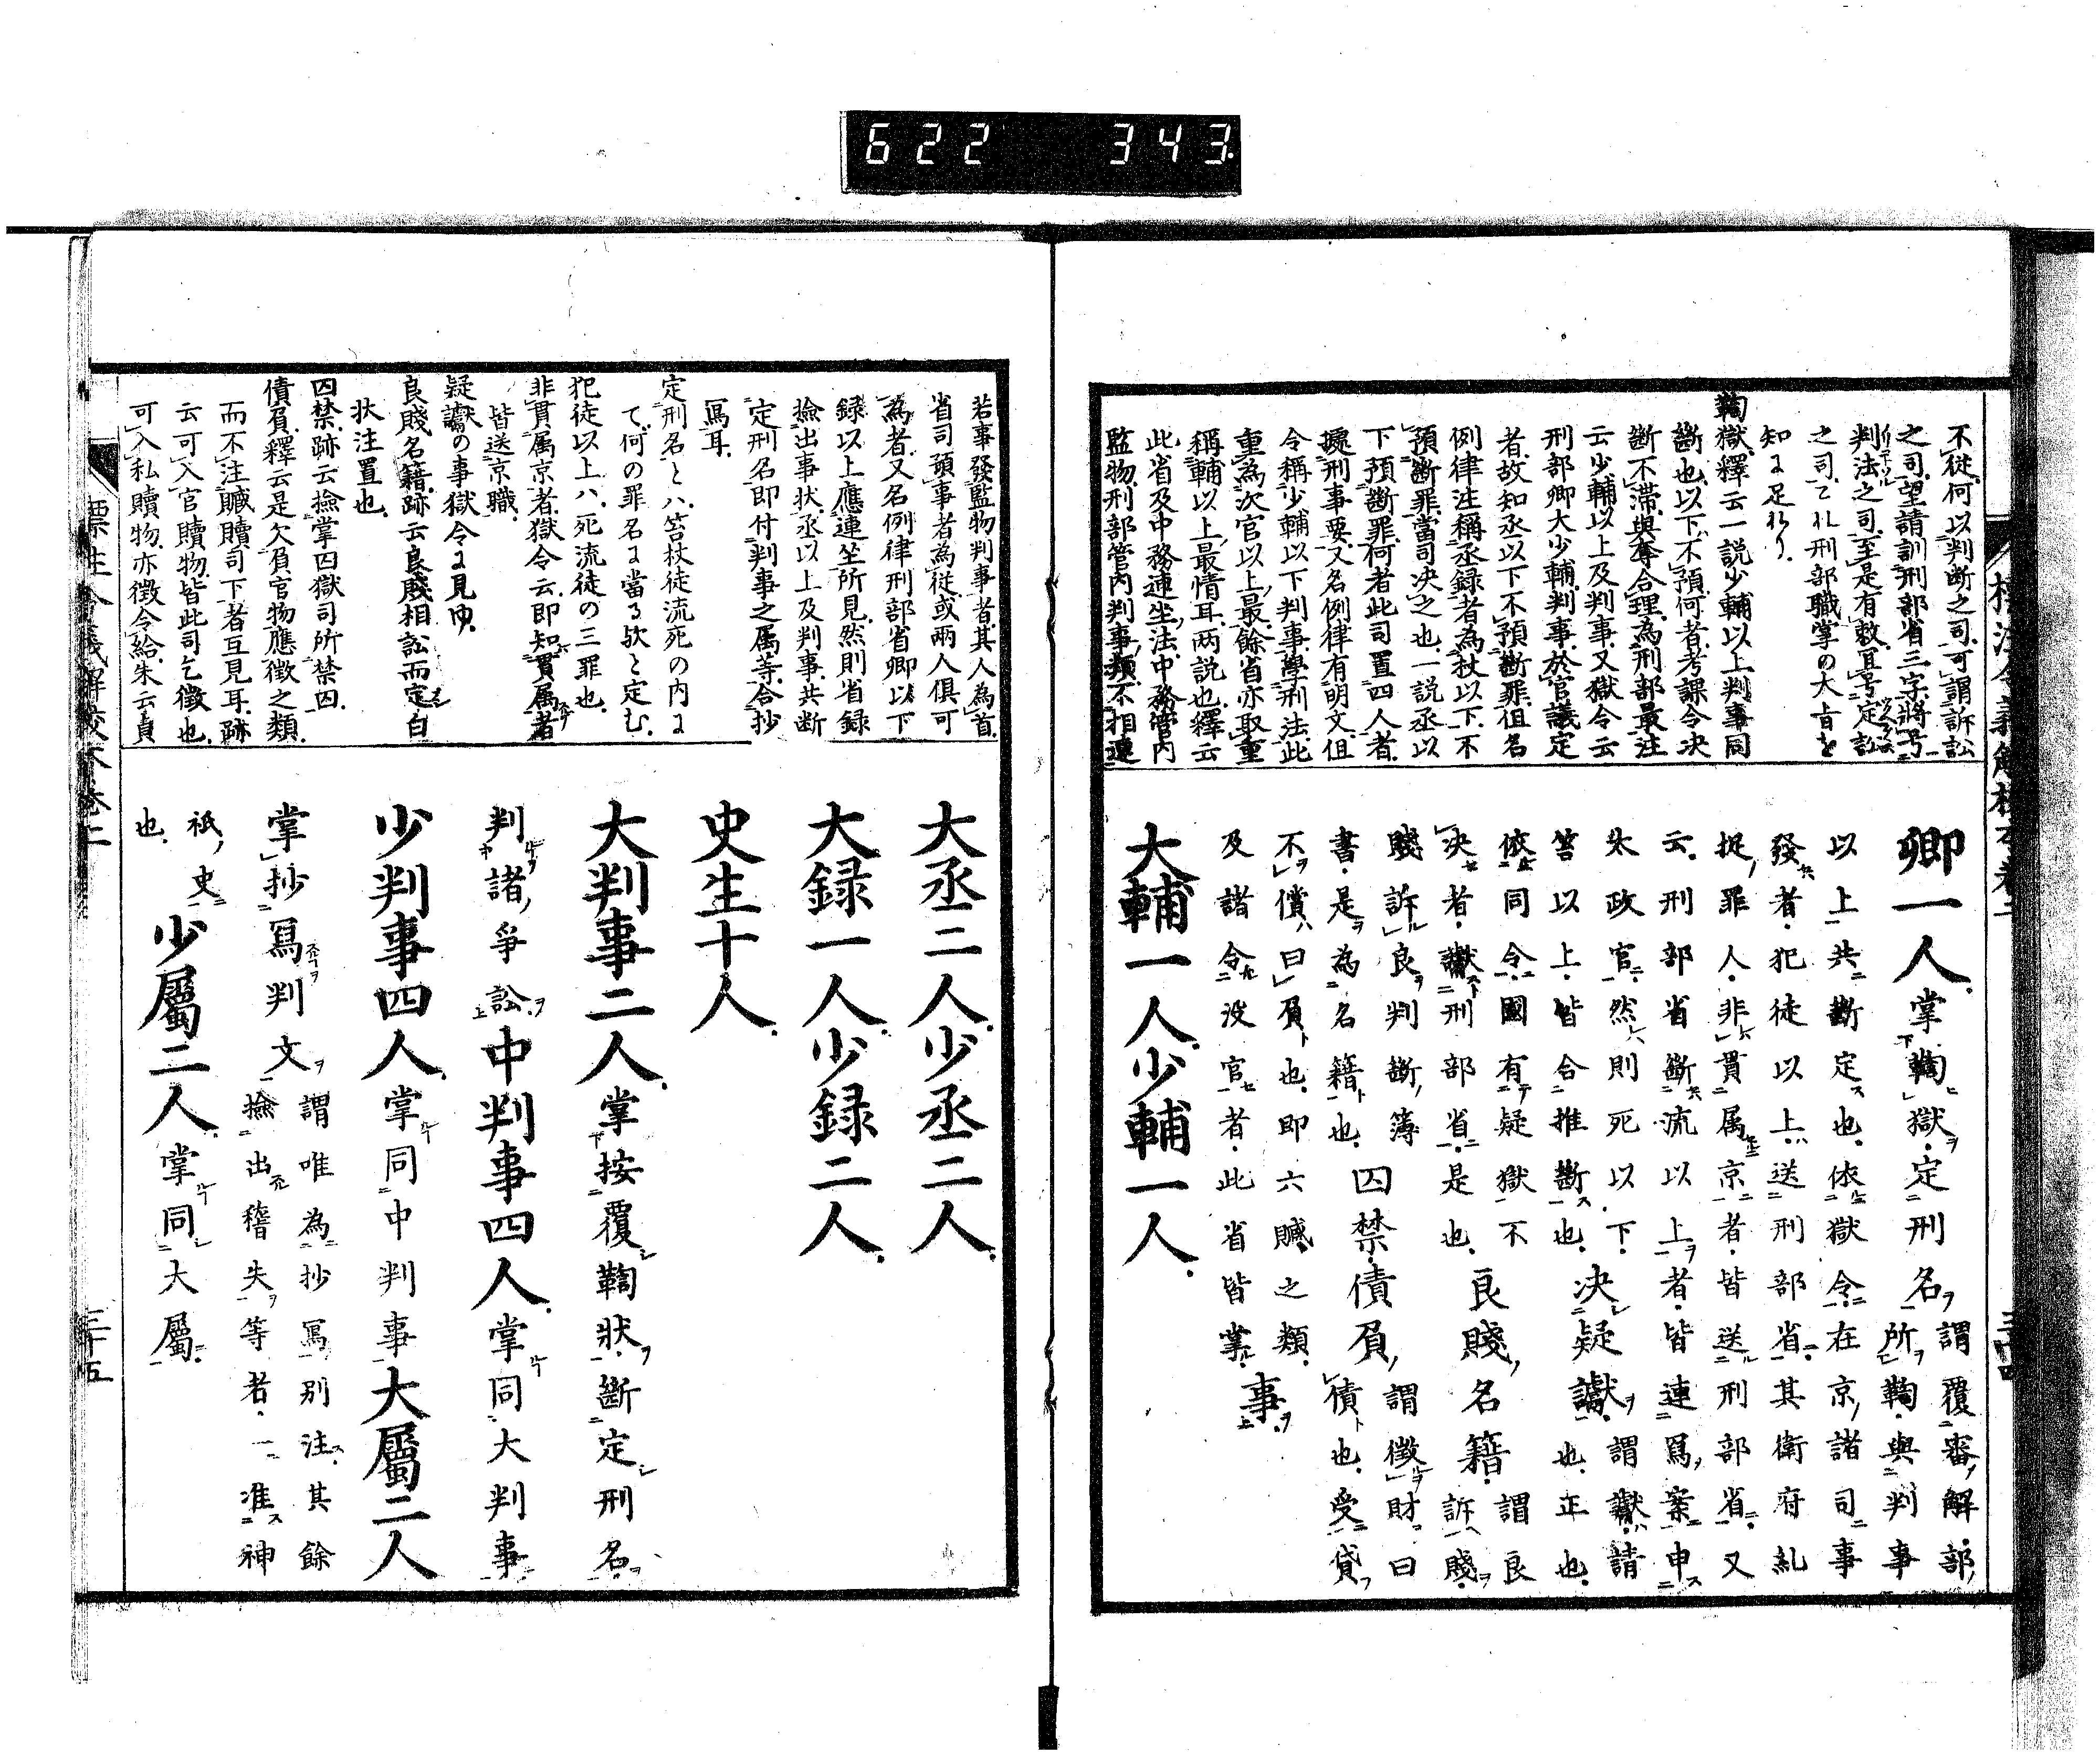 622 343.
不從何以判断之司可謂訴訟
之司望請訓刑部省三字將号
判法之司至是有敕冝号定訟
之司てれ刑部職掌の大旨を
知るに足れり
鞫獄釋云一説少輔以上判事同
断也以下不預何者考課令决
断不滞與奪合理為刑部最注
云少輔以上及判事又獄令云
刑部卿大少輔判事於官議定
者故知丞以下不預断罪但名
例律注稱丞録者為杖以下不
預断罪當司决之也一説丞以
下預断罪何者此司置四人者
據刑事要又名例律有明文但
令稱少輔以下判事擧刑法此
重為次官以上最餘省亦取重
稱輔以上最情耳兩説也釋云
此省及中務連坐法中務管内
監物刑部管内判事類不相連
卿一人掌鞫獄定刑名謂覆審解部
所鞫與判事
以上共斷定也依獄令在京諸司事
發者犯徒以上送刑部省其衛府糺
捉罪人非貫属京者皆送刑部省又
云刑部省斷流以上者皆連寫案申
太政官然則死以下
笞以上皆合推斷也决疑讞謂讞請
也正也
依同令國有疑獄不
决者讞刑部省是也良賤名籍謂良
訴賤
賤訴良判斷簿
書是為名籍也囚禁債負謂徴財曰
債也受貸
不償曰負也即六贓之類
及諸令没官者此省皆掌事
大輔一人少輔一人
三十四
若事發監物判事者其人為首
省司預事者為從或兩人俱可
為者又名例律刑部省卿以下
録以上應連坐所見然則省録
撿出事状丞以上及判事共断
定刑名即付判事之属等合抄
寫耳
定刑名とハ笞杖徒流死の内に
て何の罪名に當る歟と定む
犯徒以上ハ死流徒の三罪也
非貫属京者獄令云即知貫属者
皆送京職
疑讞の事獄令に見ゆ
良賤名籍跡云良賤相訟而定白
状注置也
囚禁跡云撿掌囚獄司所禁囚
債負釋云是欠負官物應徴之類
而不注贓贖司下者互見耳跡
云可入官贖物皆此司乞徴也
可入私贖物亦徴令給朱云負
大丞二人少丞二人
大録一人少録二人
史生十人
大判事二人掌按覆鞫状斷定刑名
判諸爭訟中判事四人掌同大判事
少判事四人掌同中判事大屬二人
掌抄寫判文謂唯為抄寫別注其餘
撿出稽失等者一准神
祇史
也少屬二人掌同大屬
標注令義解校本巻二
三十五